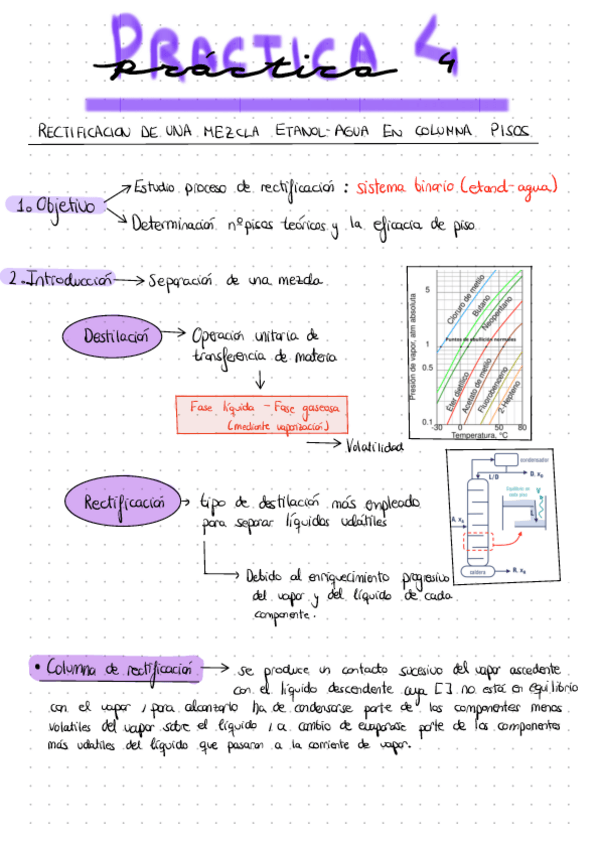 PRACTICA 4
práctica 4
RECTIFICACION DE UNA MEZCLA ETANOL-AGUA EN COLUMNA PISOS
1. Objetivo
Estudio proceso de rectificación : sistema binario (etanol-agua)
Determinación nº pisos teóricos y la eficacia de piso
2. Introducción → Separación de una mezcla
Destilación → Operación unitaria de
transferencia de materia
Fase líquida - Fase gaseosa
(mediante vaporización)
→ Volatilidad
Presión de vapor, atm absoluta
5
1
0.5
0.1
Cloruro de metilo
Butano
Neopentano
Puntos de ebullición normales
Éter dietílico
Acetato de metilo
Fluorobenceno
2-Hepteno
-30 0 50 80
Temperatura, °C
Rectificación → tipo de destilación más empleado
para separar líquidos volátiles
condensador
L/D
D, x
Equilibrio en
cada piso
V
L
A, x
caldera
R, x
→ Debido al enriquecimiento progresivo
del vapor y del líquido de cada
componente.
• Columna de rectificación → se produce un contacto sucesivo del vapor ascedente
con el líquido descendente cuya [ ] no está en equilibrio
con el vapor , para alcantarlo ha de condensarse parte de los componentes menos
volatiles del vapor sobre el líquido , a cambio de evaporase parte de los componentes
más volatiles del líquido que pasaran a la corriente de vapor.